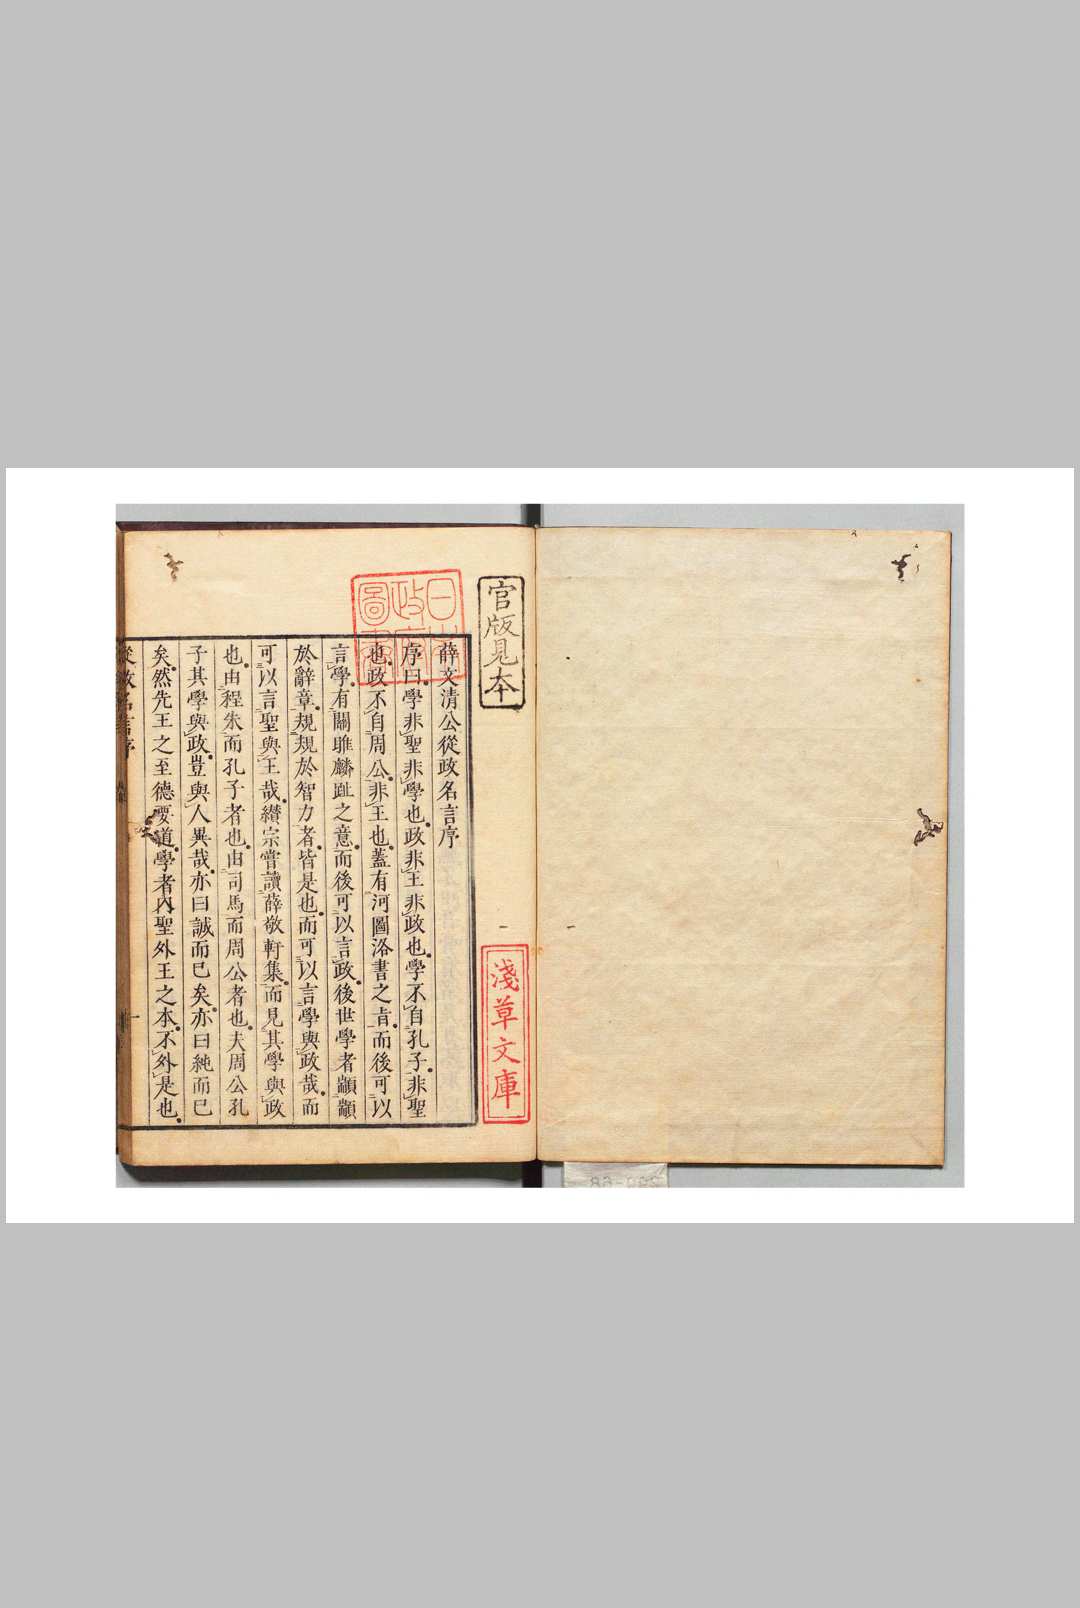 官版見本
淺草文庫
日本
政府
圖書
薛文清公從政名言序
序曰學非聖非學也政非王非政也學不自孔子非聖
也政不自周公非王也蓋有河圖洛書之旨而後可以
言學有關雎麟趾之意而後可以言政後世學者顓顓
於辭章規規於智力者皆是也而可以言學與政哉而
可以言聖與王哉纘宗嘗讀薛敬軒集而見其學與政
也由程朱而孔子者也由司馬而周公者也夫周公孔
子其學與政豈與人異哉亦曰誠而已矣亦曰純而已
矣然先王之至德要道學者內聖外王之本不外是也
從政名言序
一